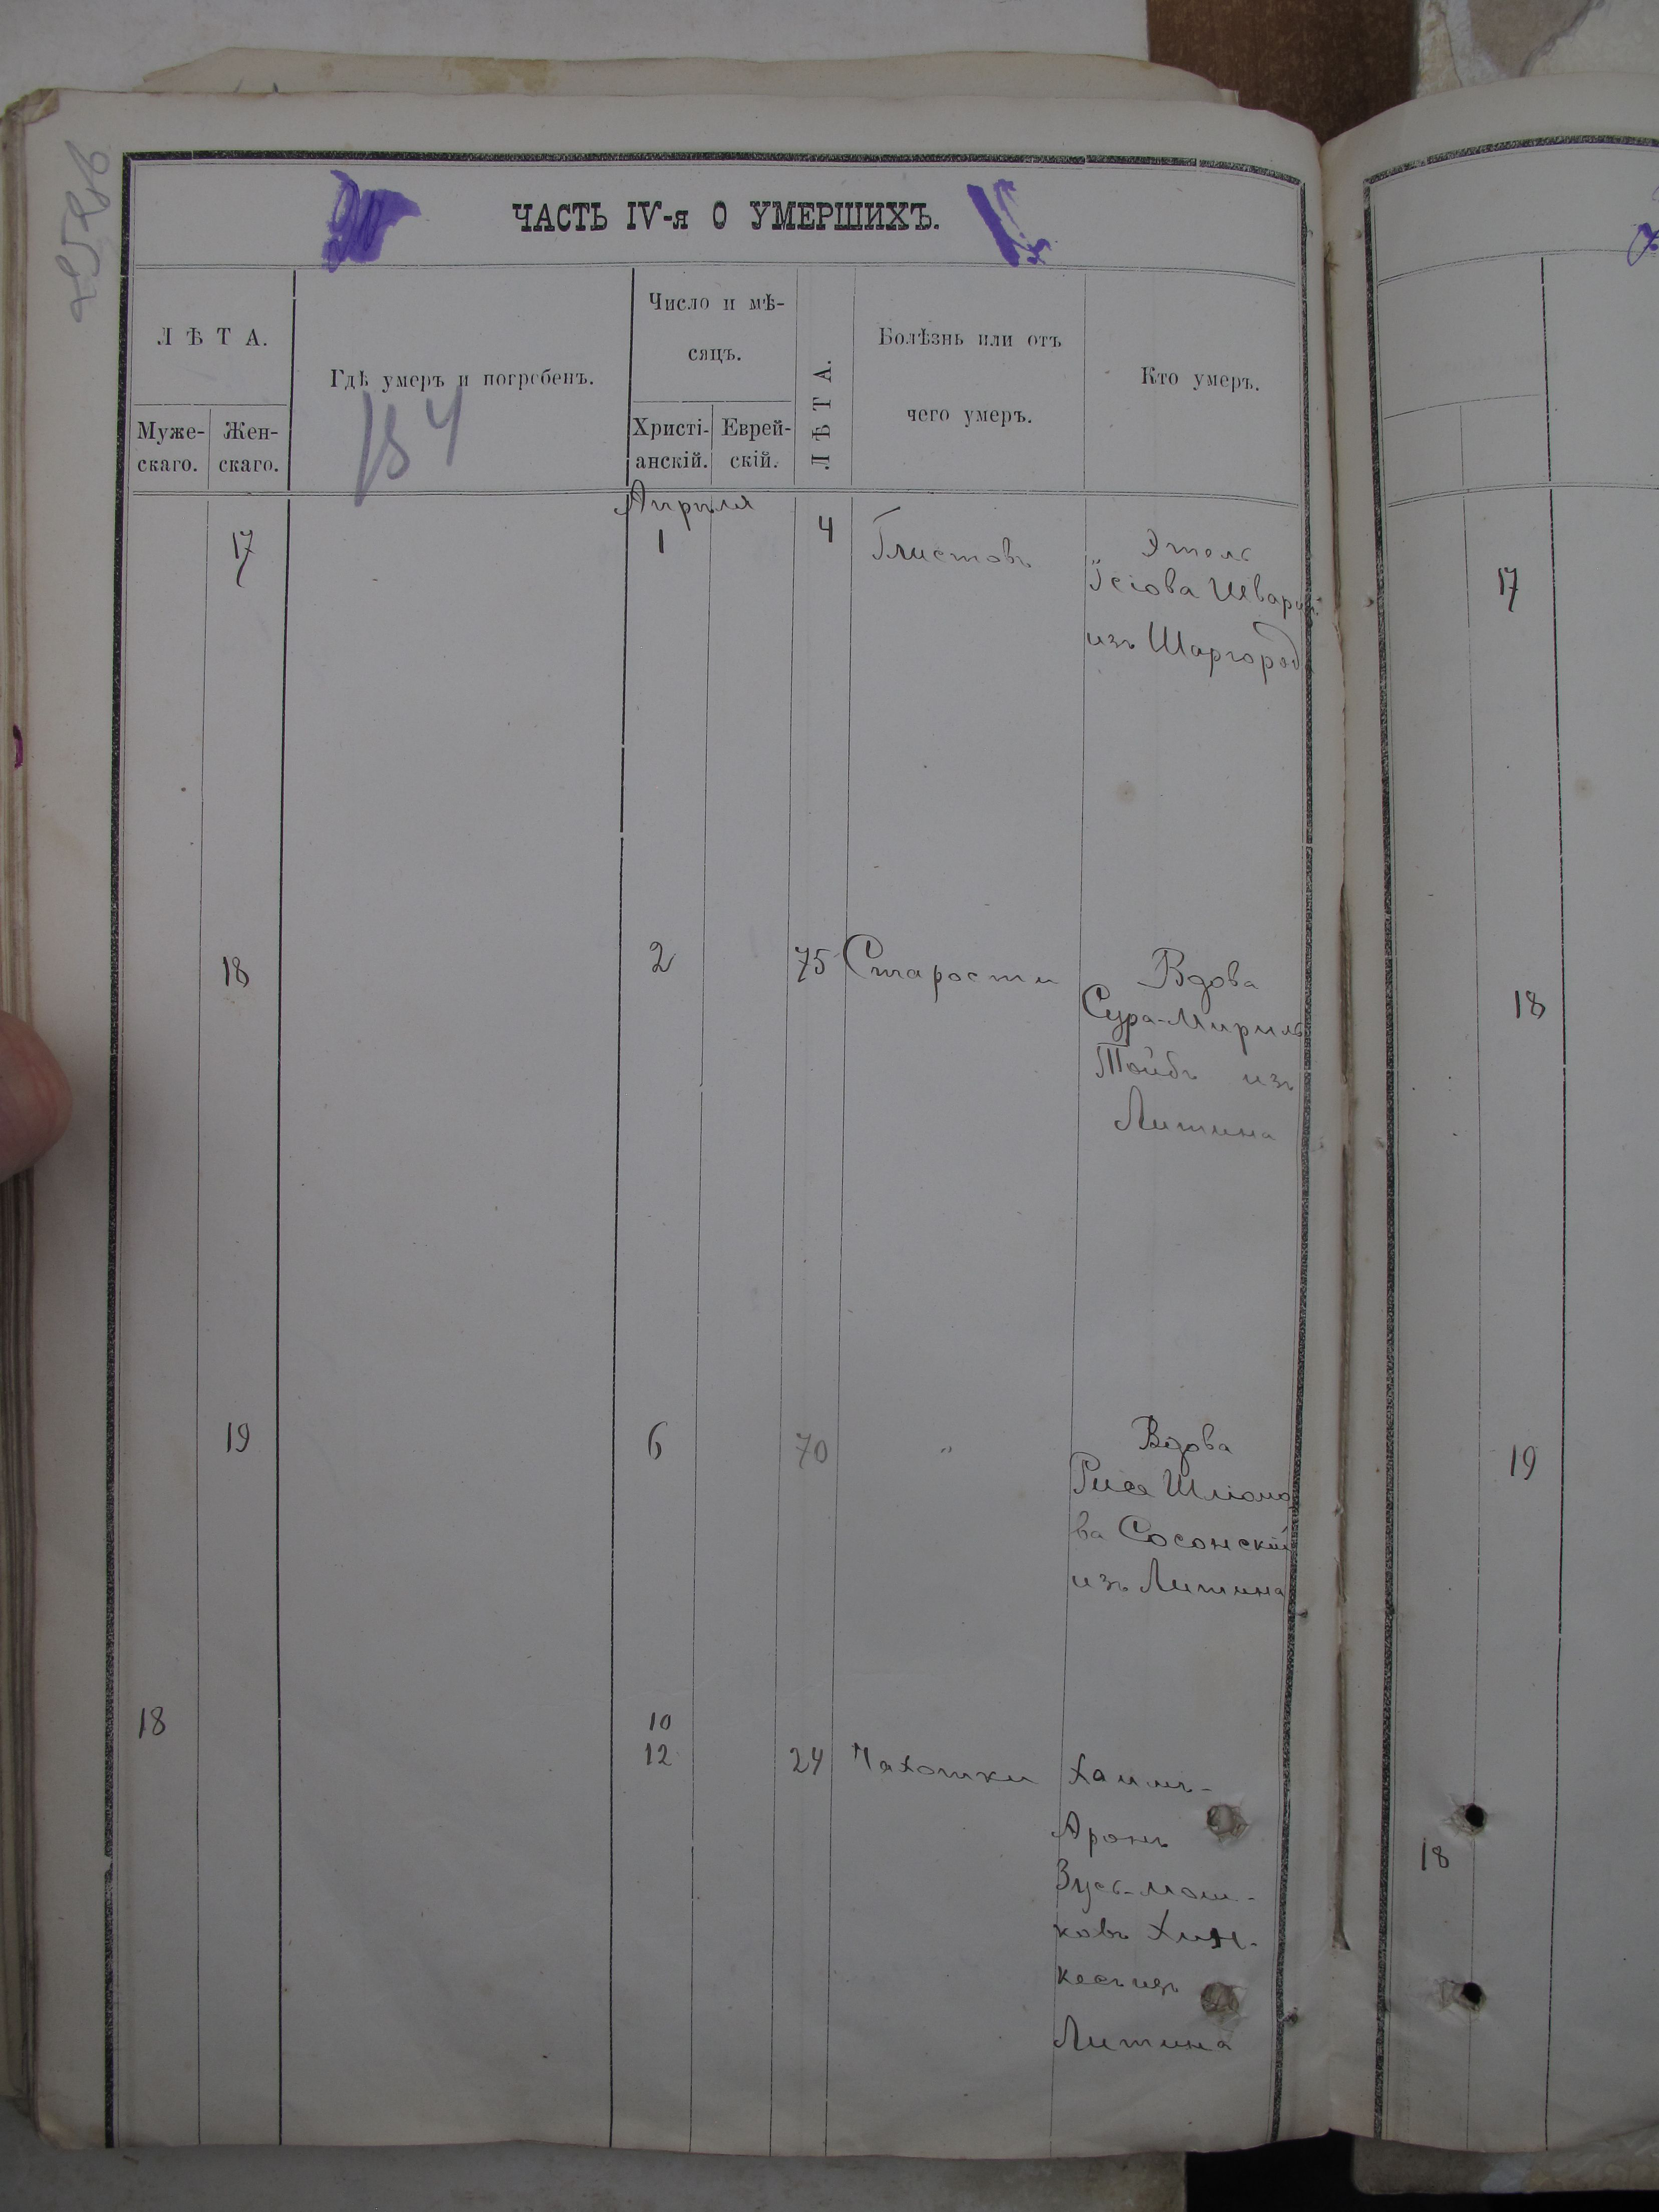 ЧАСТЬ IV-я О УМЕРШИХЪ.
ЛѢТА.
Муже-
скаго.
Жен-
скаго.
Гдѣ умеръ и погребенъ.
184
Число и мѣ-
сяцъ.
Христі-
анскій.
Еврей-
скій.
ЛѢТА.
Болѣзнь или отъ
чего умеръ.
Кто умеръ.
Апрѣля
17
1
4
Глистовъ
Этель
Іосіова Шварцъ
изъ Шаргород
17
18
2
75
Старости
Вдова
Сура-Мириль
Тойбъ изъ
Литина
18
19
6
70
"
Вдова
Рися Шліомо
ва Сосонскій
изъ Литина
19
18
10
12
24
Чахотки
Хаимъ-
Аронъ
Зусь-мош-
ковъ Хин-
кесъ изъ
Литина
18